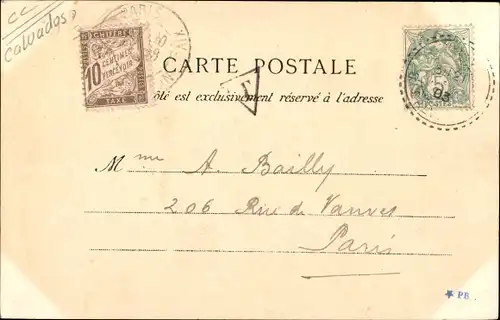 CC
Calvados
PARIS
CHIFFRE
10 CENTIMES
À PERCEVOIR
TAXE
CARTE POSTALE
T
ôté est exclusivement réservé à l'adresse
03
Mme A. Bailly
206 Rue de Vanves
Paris
* PB